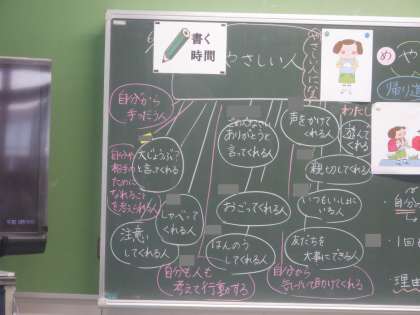 書く
時間
やさしい人
やさしい人にな
め
や
帰り道
自分から
声をかけて
くれる人
ごめんなさい
ありがとうと
言ってくれる人
わたし
遊んで
くれる
大じょうぶ?
と言ってくれる
自分や
相手の
ために
なれること
を考えられる人
親切してくれる人
しゃべって
くれる人
おごってくれる人
いつもいっしょに
いる人
注意
してくれる人
はんのう
してくれる人
友だちを
大事にできる人
自分も人も
考えて行動する
自分から
気づいて助けてくれる
自分
1回
理由